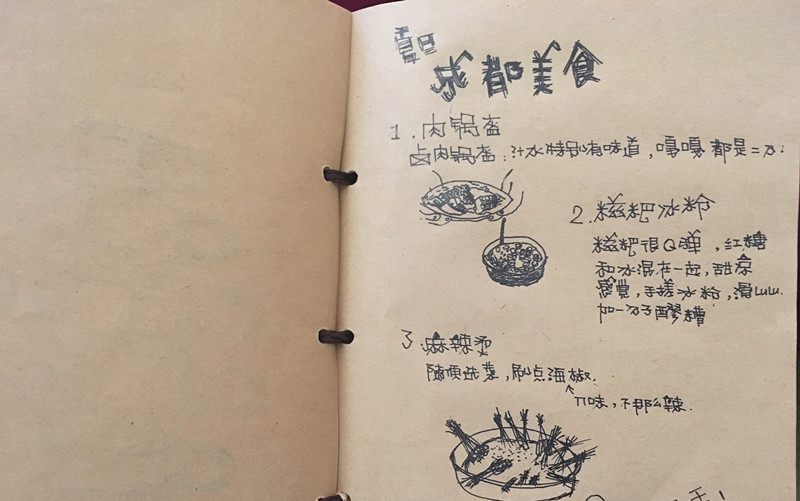 成都美食
1.肉锅盔
卤肉锅盔:汁水特别有味道,嘎嘎都是二刀
2.糍粑冰粉
糍粑很Q弹,红糖
和冰混在一起,甜凉
感觉,手搓冰粉,滑LuLu.
加一分子醪糟
3.麻辣烫
随便选菜,刷点海椒.
不那么辣.